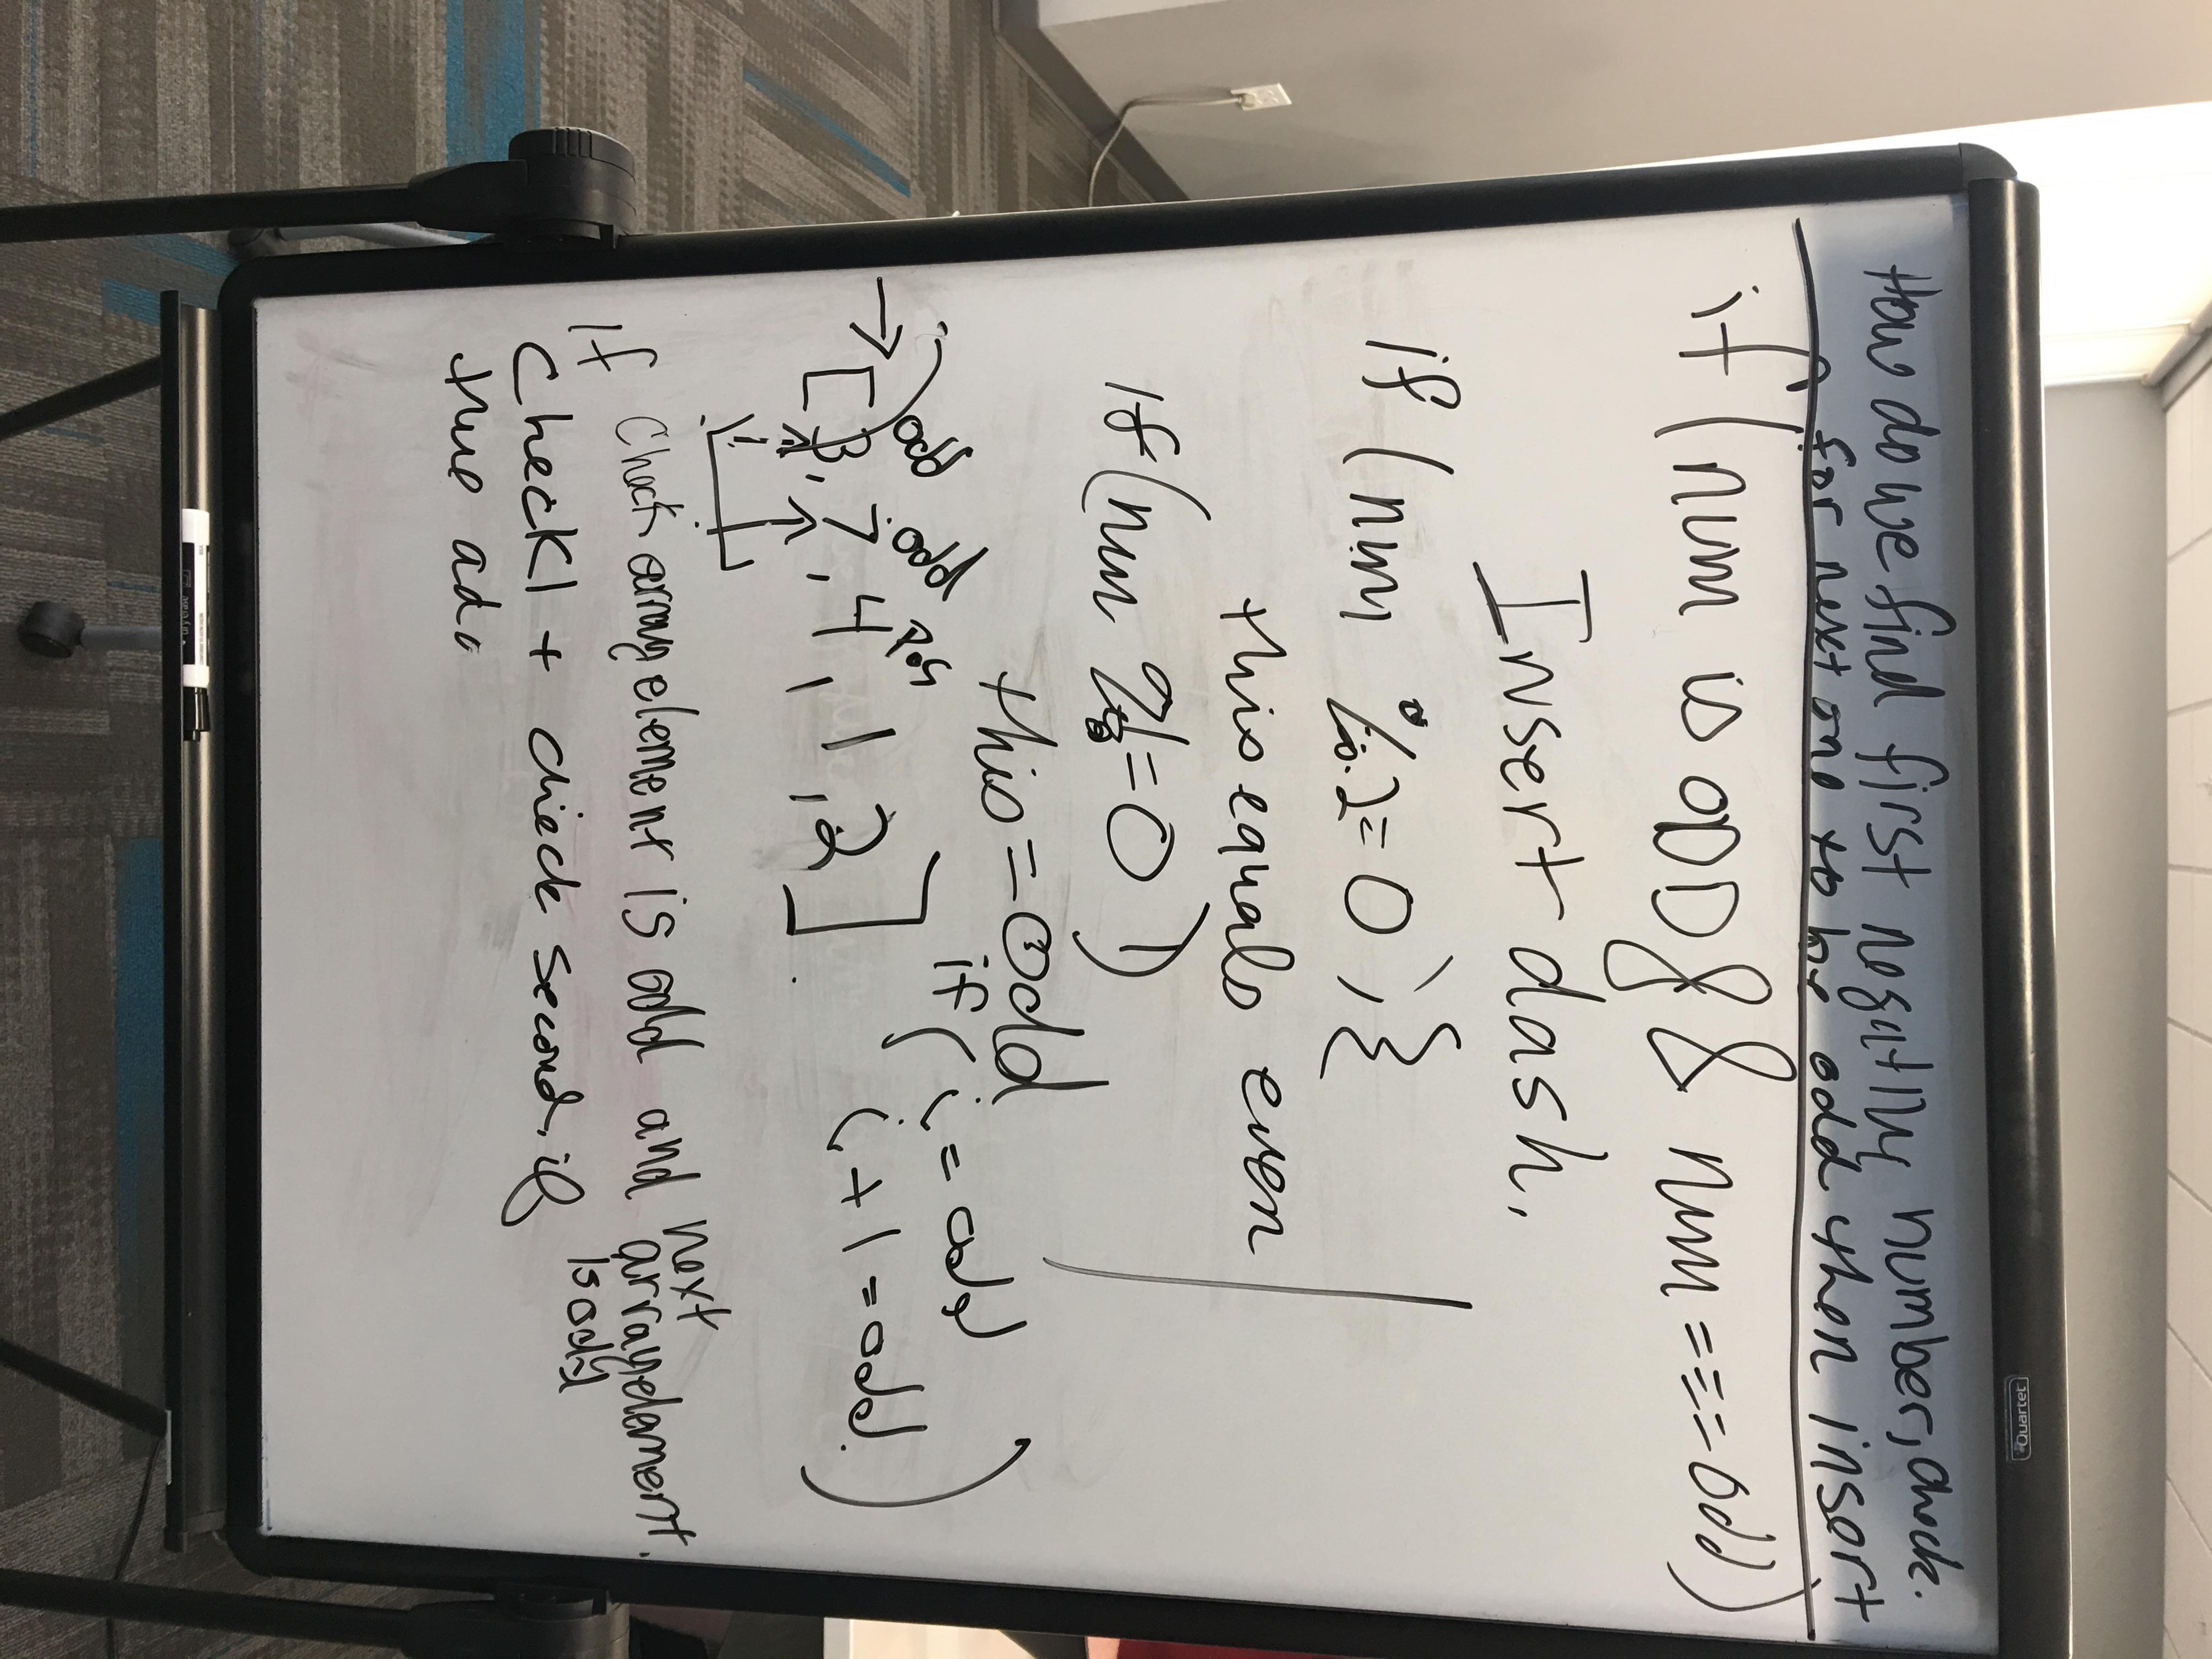 How do we find first negitiny number, check.
for next one to be odd then insert
if (num is ODD && num === odd)
Insert dash.
if (num % 2 = 0) {
this equals even
if (num % != 0)
this = Odd
odd odd
[3, 7, 4, 1, 2].
if (i = odd
i + 1 = odd)
If Check array element is odd and next array element. is odd
Check 1 + check second. if
true add
Quartet